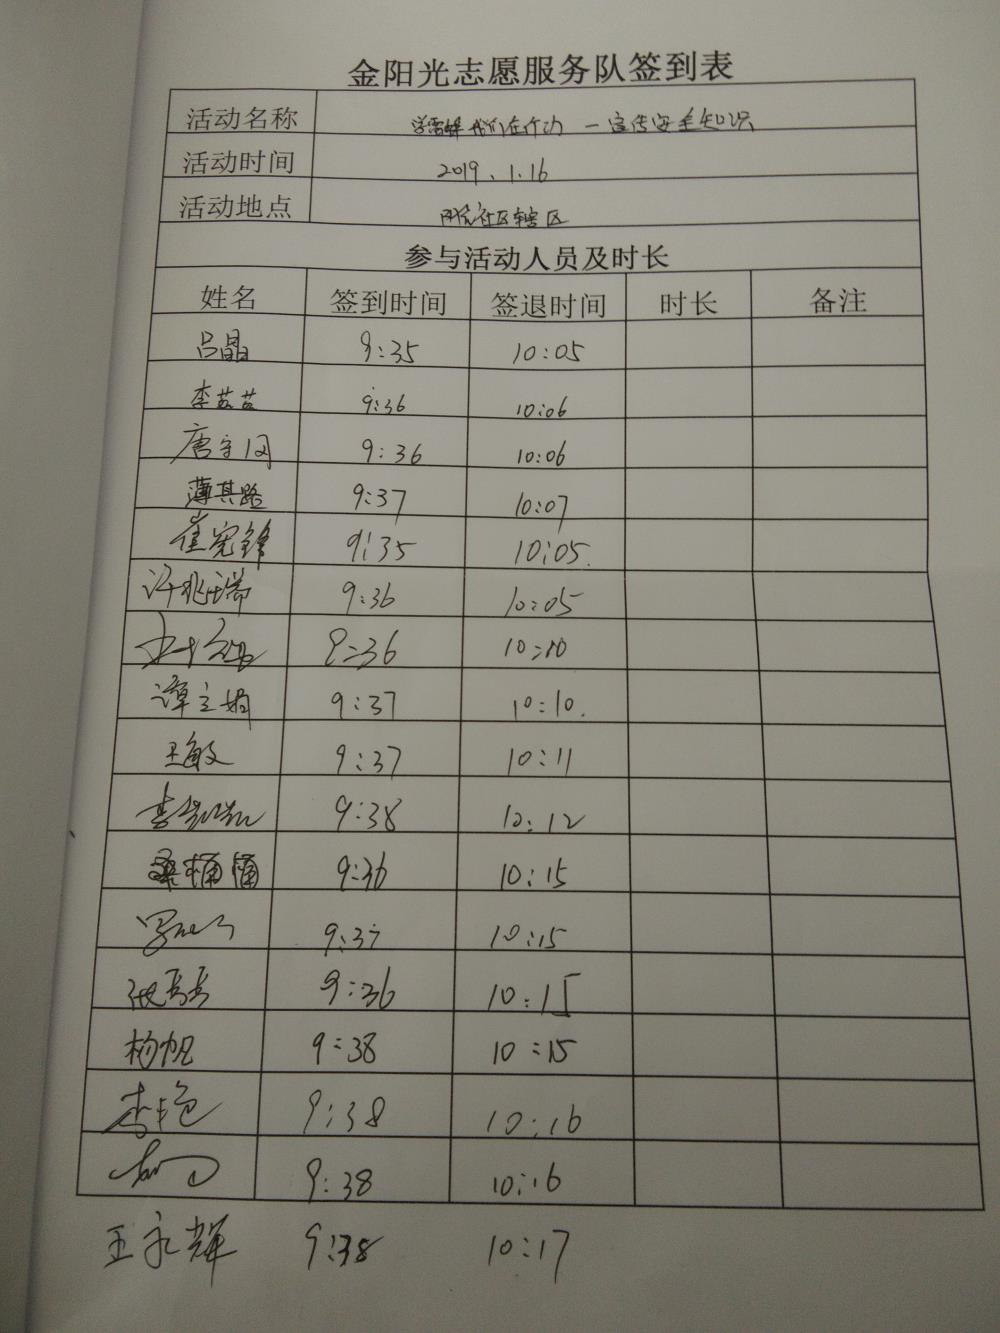 金阳光志愿服务队签到表
活动名称 学雷锋我们在行动 一宣传安全知识
活动时间 2019、1.16
活动地点 社区辖区
参与活动人员及时长
姓名 签到时间 签退时间 时长 备注
吕晶 9:35 10:05
李芸芸 9:36 10:06
唐 9:36 10:06
薄其路 9:37 10:07
崔宪锋 9:35 10:05.
许兆瑞 9:36 10:05
9:36 10:10
谭立娟 9:37 10:10.
王敏 9:37 10:11
李 9:38 10:12
9:36 10:15
9:37 10:15
张 9:36 10:15
杨帆 9:38 10:15
李艳 9:38 10:16
9:38 10:16
王永辉 9:38 10:17